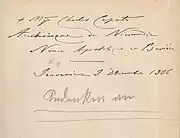 + Mgr Charles Caputo
Archevêque de Nicomédie
Nonce Apostolique en Bavière
3 Décembre 1906
Gedenken an